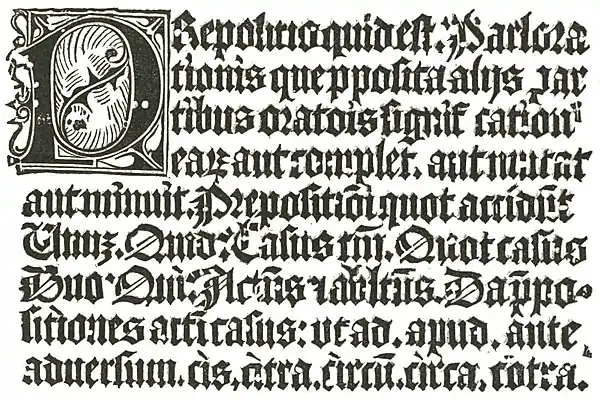 PRepositio quid est. Pars ora
tionis que pposita alijs par
tibus oratōis signification
eaꝝ aut complet. aut mutat
aut minuit. Prepositiōi quot accidūt
Unuz. Quid: Casus tm̄. Quot casus
Duo Qui: Actūs ⁊ ablatūs. Da p̄po-
sitiones acti casus: ut ad. apud. ante
aduersum. cis, citra. circū. circa. cōtra.